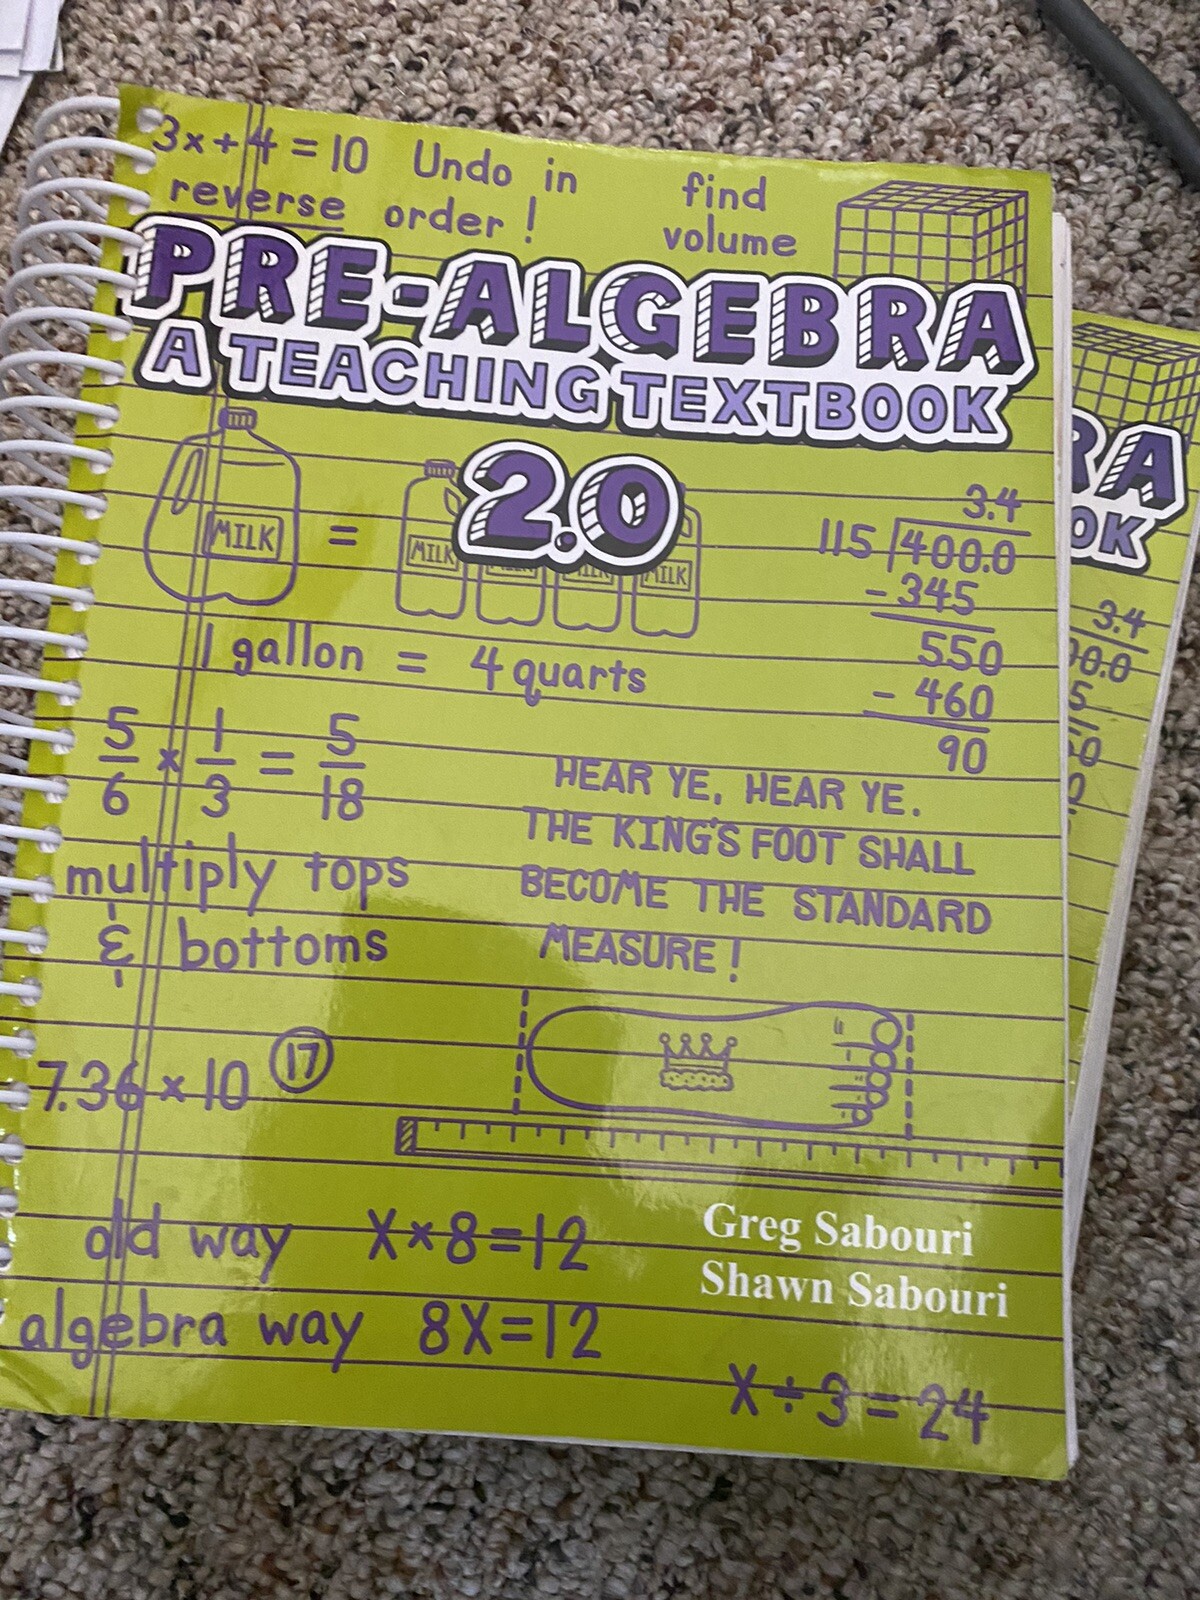 3x+4=10 Undo in
reverse order!
find
volume
PRE-ALGEBRA
A TEACHING TEXTBOOK
2.0
MILK
=
MILK
MILK
1 gallon = 4 quarts
3.4
115 400.0
-345
550
-460
90
5/6 × 1/3 = 5/18
multiply tops
& bottoms
HEAR YE, HEAR YE.
THE KING'S FOOT SHALL
BECOME THE STANDARD
MEASURE!
7.36×10 17
old way X×8=12
algebra way 8X=12
Greg Sabouri
Shawn Sabouri
X÷3=24
RA
OK
3.4
00.0
5
50
0